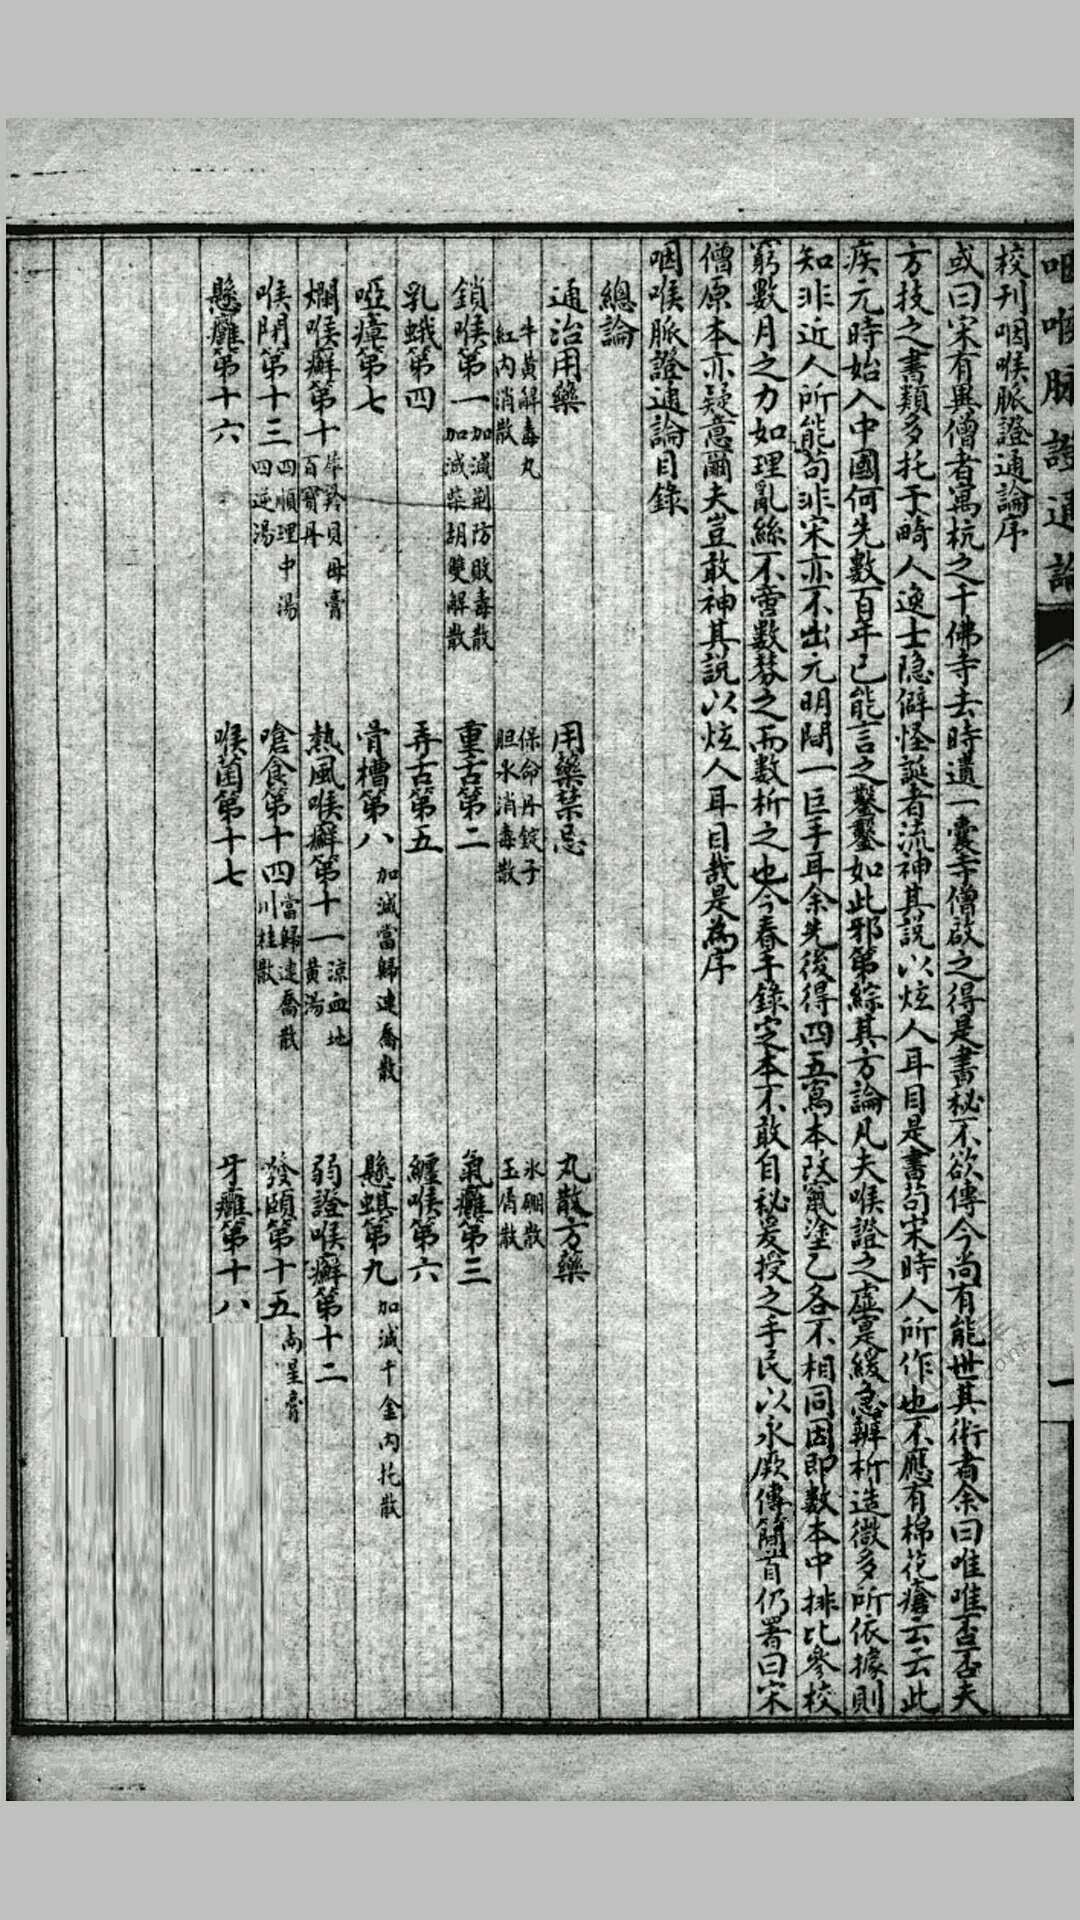 咽喉脉證通論
一
校刊咽喉脈證通論序
或曰宋有異僧者寓杭之千佛寺去時遺一囊寺僧啟之得是書秘不欲傳今尚有能世其術者余曰唯唯否否夫
方技之書類多托于畸人逸士隐僻怪誕者流神其說以炫人耳目是書苟宋時人所作也不應有棉花瘡云云此
疾元時始入中國何先數百年已能言之鑿鑿如此邪第綜其方論凡夫喉證之虛寔緩急辨析造微多所依據則
知非近人所能苟非宋亦不出元明間一巨手耳余先後得四五寫本改竄塗乙各不相同因即數本中排比參校
窮數月之力如理亂絲不啻數棼之而數析之也今春手錄定本不敢自秘爰授之手民以永厥傳簡首仍署曰宋
僧原本亦疑意爾夫豈敢神其說以炫人耳目哉是為序
咽喉脈證通論目錄
總論
通治用藥 用藥禁忌 丸散方藥
牛黃解毒丸 保命丹錠子 冰硼散
紅內消散 胆水消毒散 玉屑散
鎖喉第一 加減荆防敗毒散 加減柴胡雙解散 重舌第二 氣癰第三
乳蛾第四 弄舌第五 纏喉第六
啞瘴第七 骨槽第八 加減當歸連喬散 懸蜞第九 加減千金內托散
爛喉癬第十 犀羚貝母膏 百寶丹 熱風喉癬第十一 涼血地黃湯 弱證喉癬第十二
喉閉第十三 四順理中湯 四逆湯 嗆食第十四 當歸連喬散 川桂散 發頤第十五 南星膏
懸癰第十六 喉菌第十七 牙癰第十八